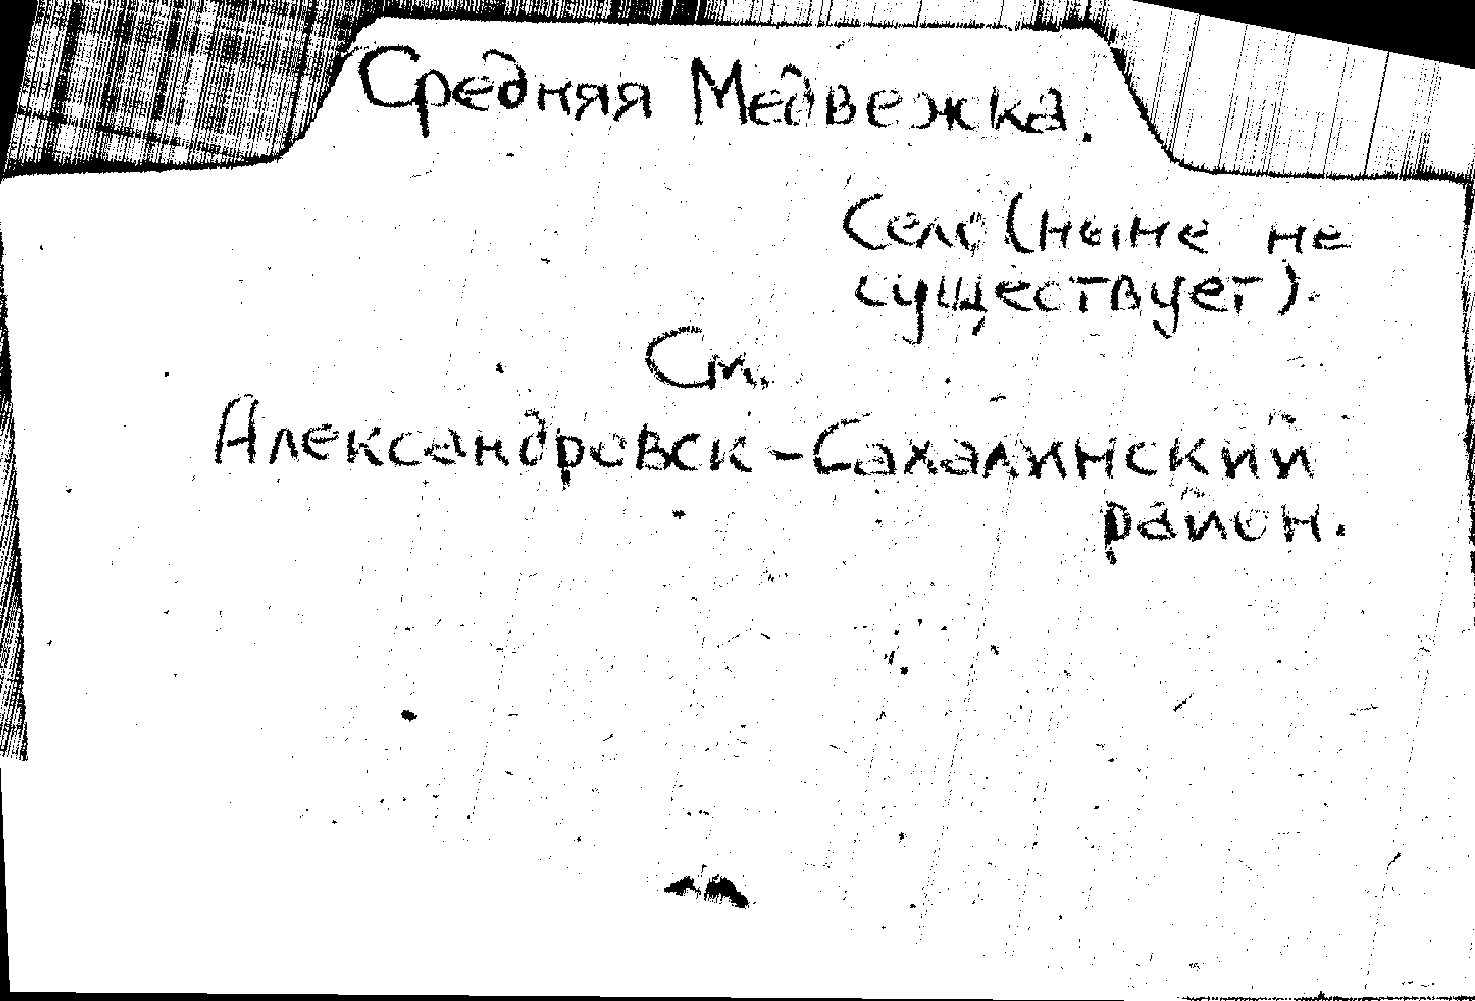 Средняя Медвежка.
Село (ныне не
существует).
См.
Александровск-Сахалинский
район.